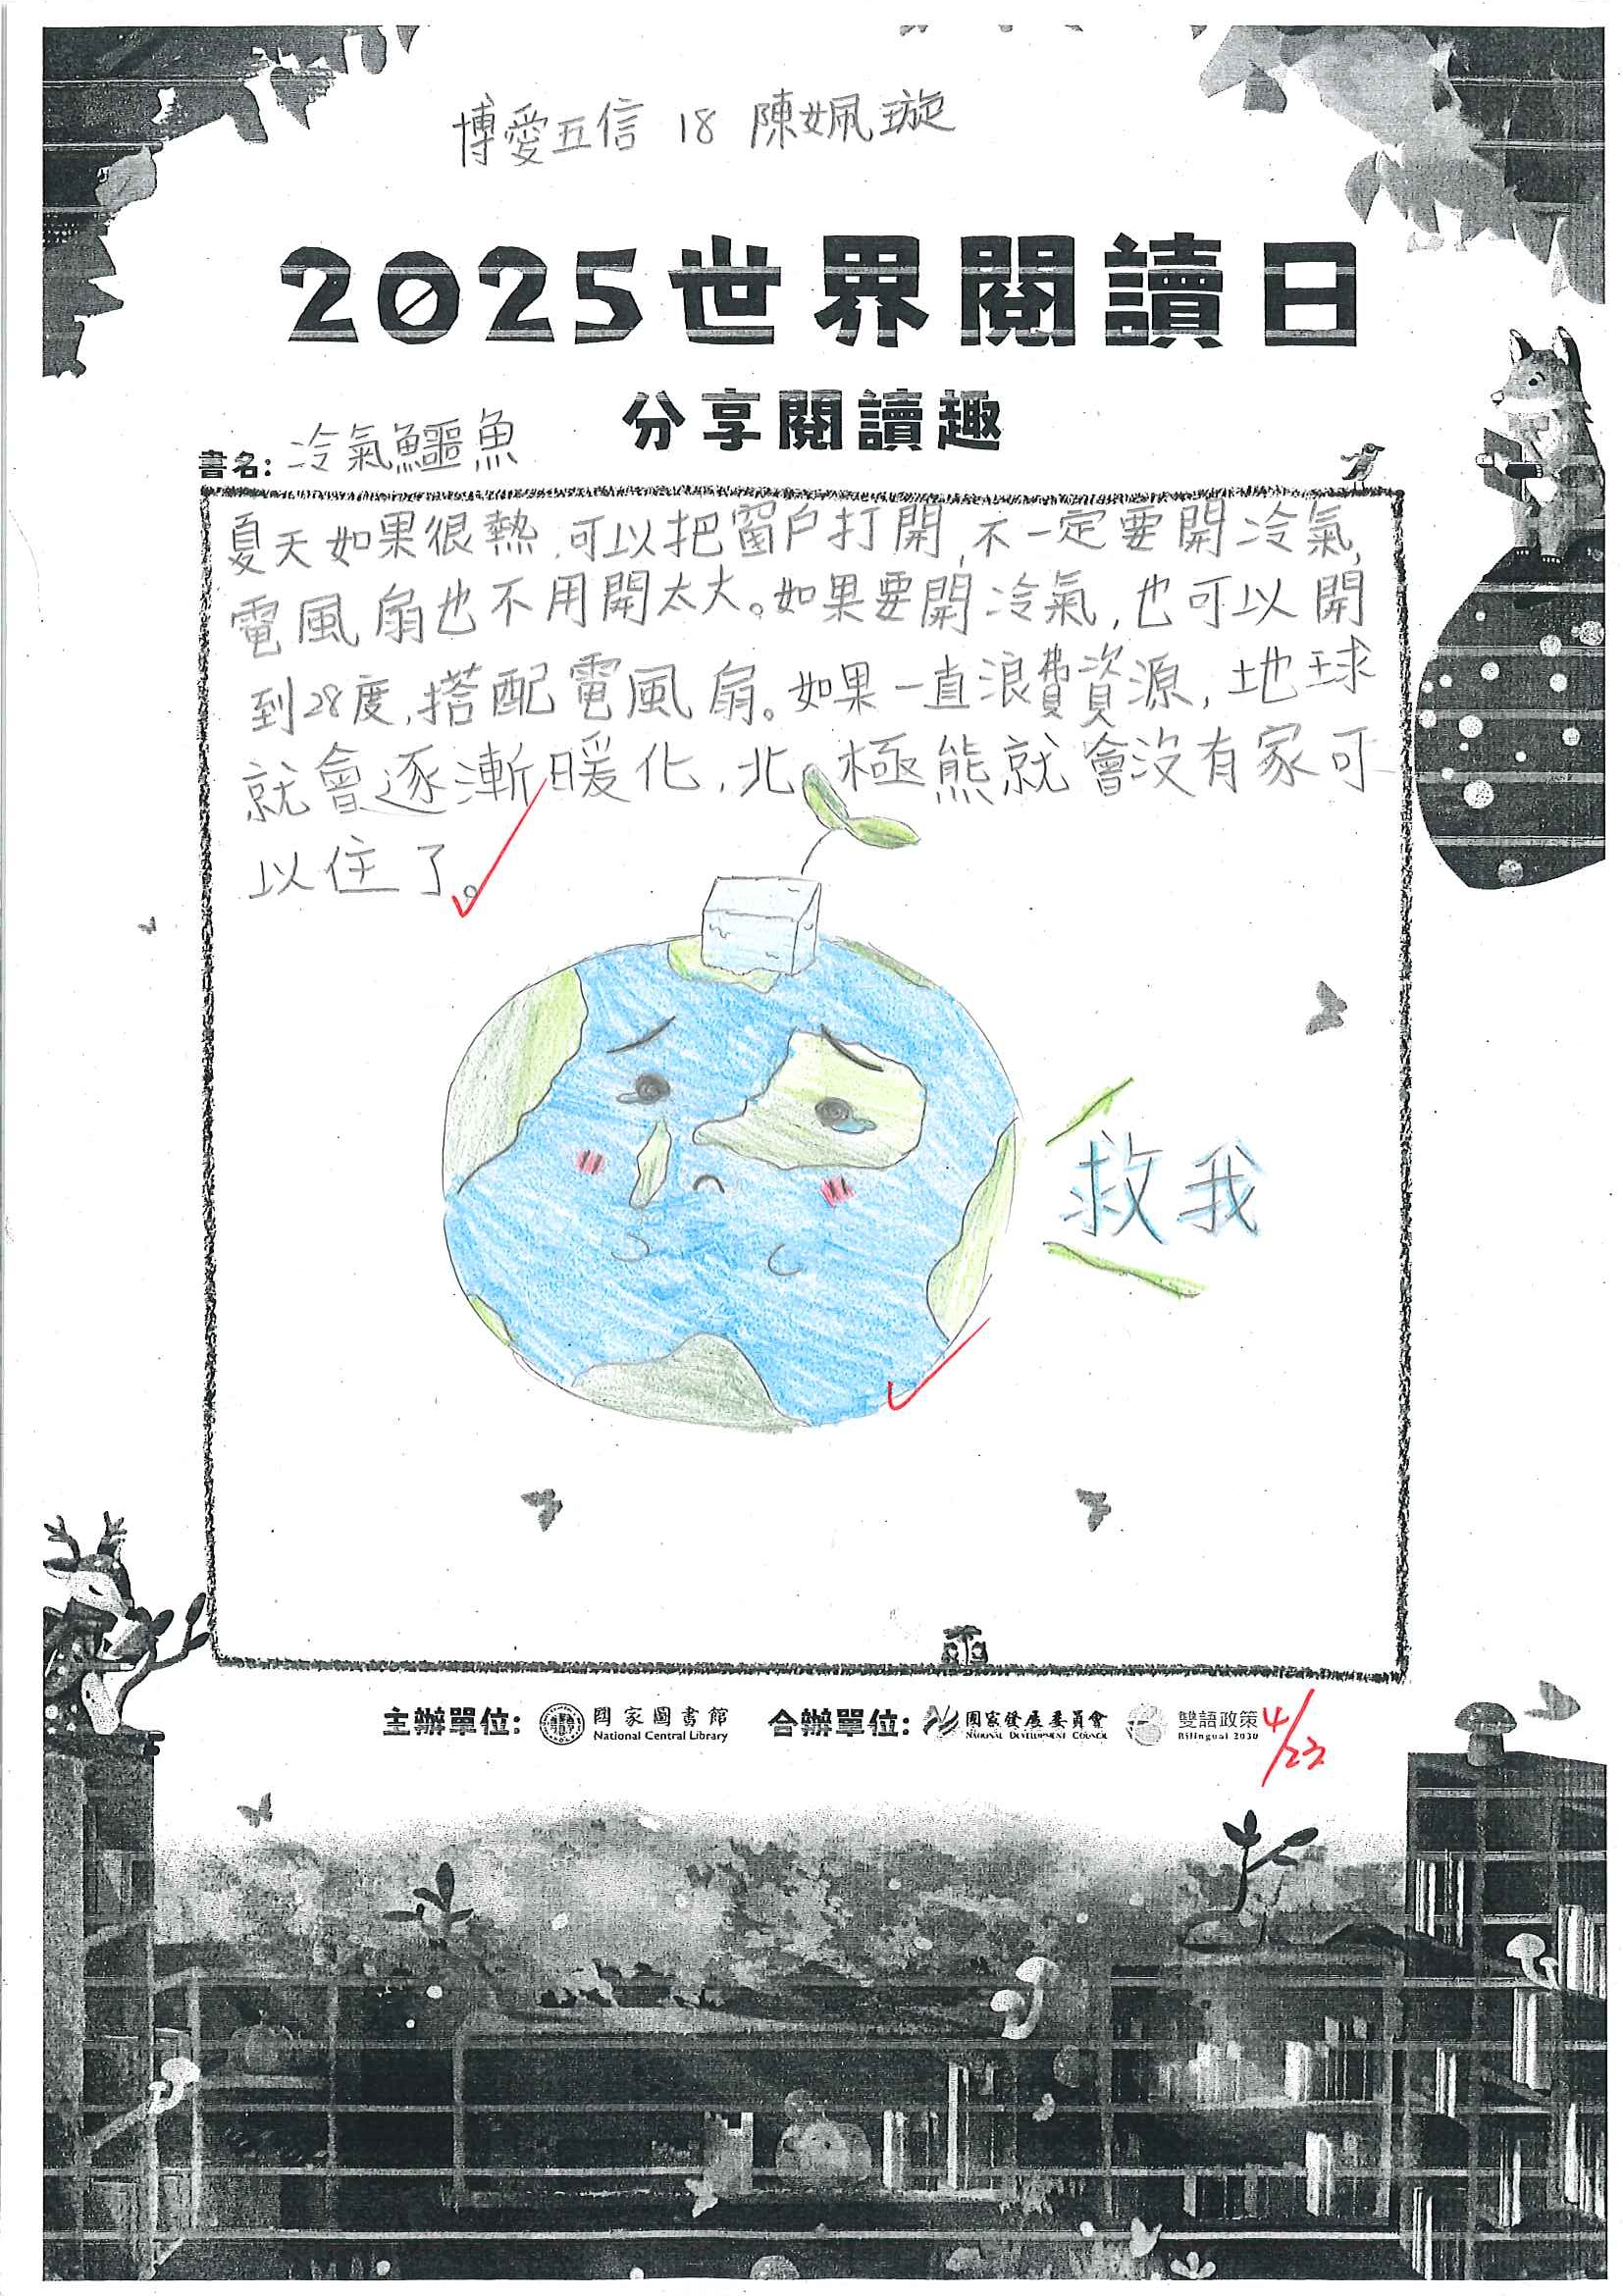 博愛五信 18 陳姵璇
2025世界閱讀日
分享閱讀趣
書名: 冷氣鱷魚
夏天如果很熱,可以把窗戶打開,不一定要開冷氣,
電風扇也不用開太大。如果要開冷氣,也可以開
到28度,搭配電風扇。如果一直浪費資源,地球
就會逐漸暖化,北極熊就會沒有家可
以住了。
救我
主辦單位: 國家圖書館 National Central Library 合辦單位: 國家發展委員會 NATIONAL DEVELOPMENT COUNCIL 雙語政策 Bilingual 2030
4/23